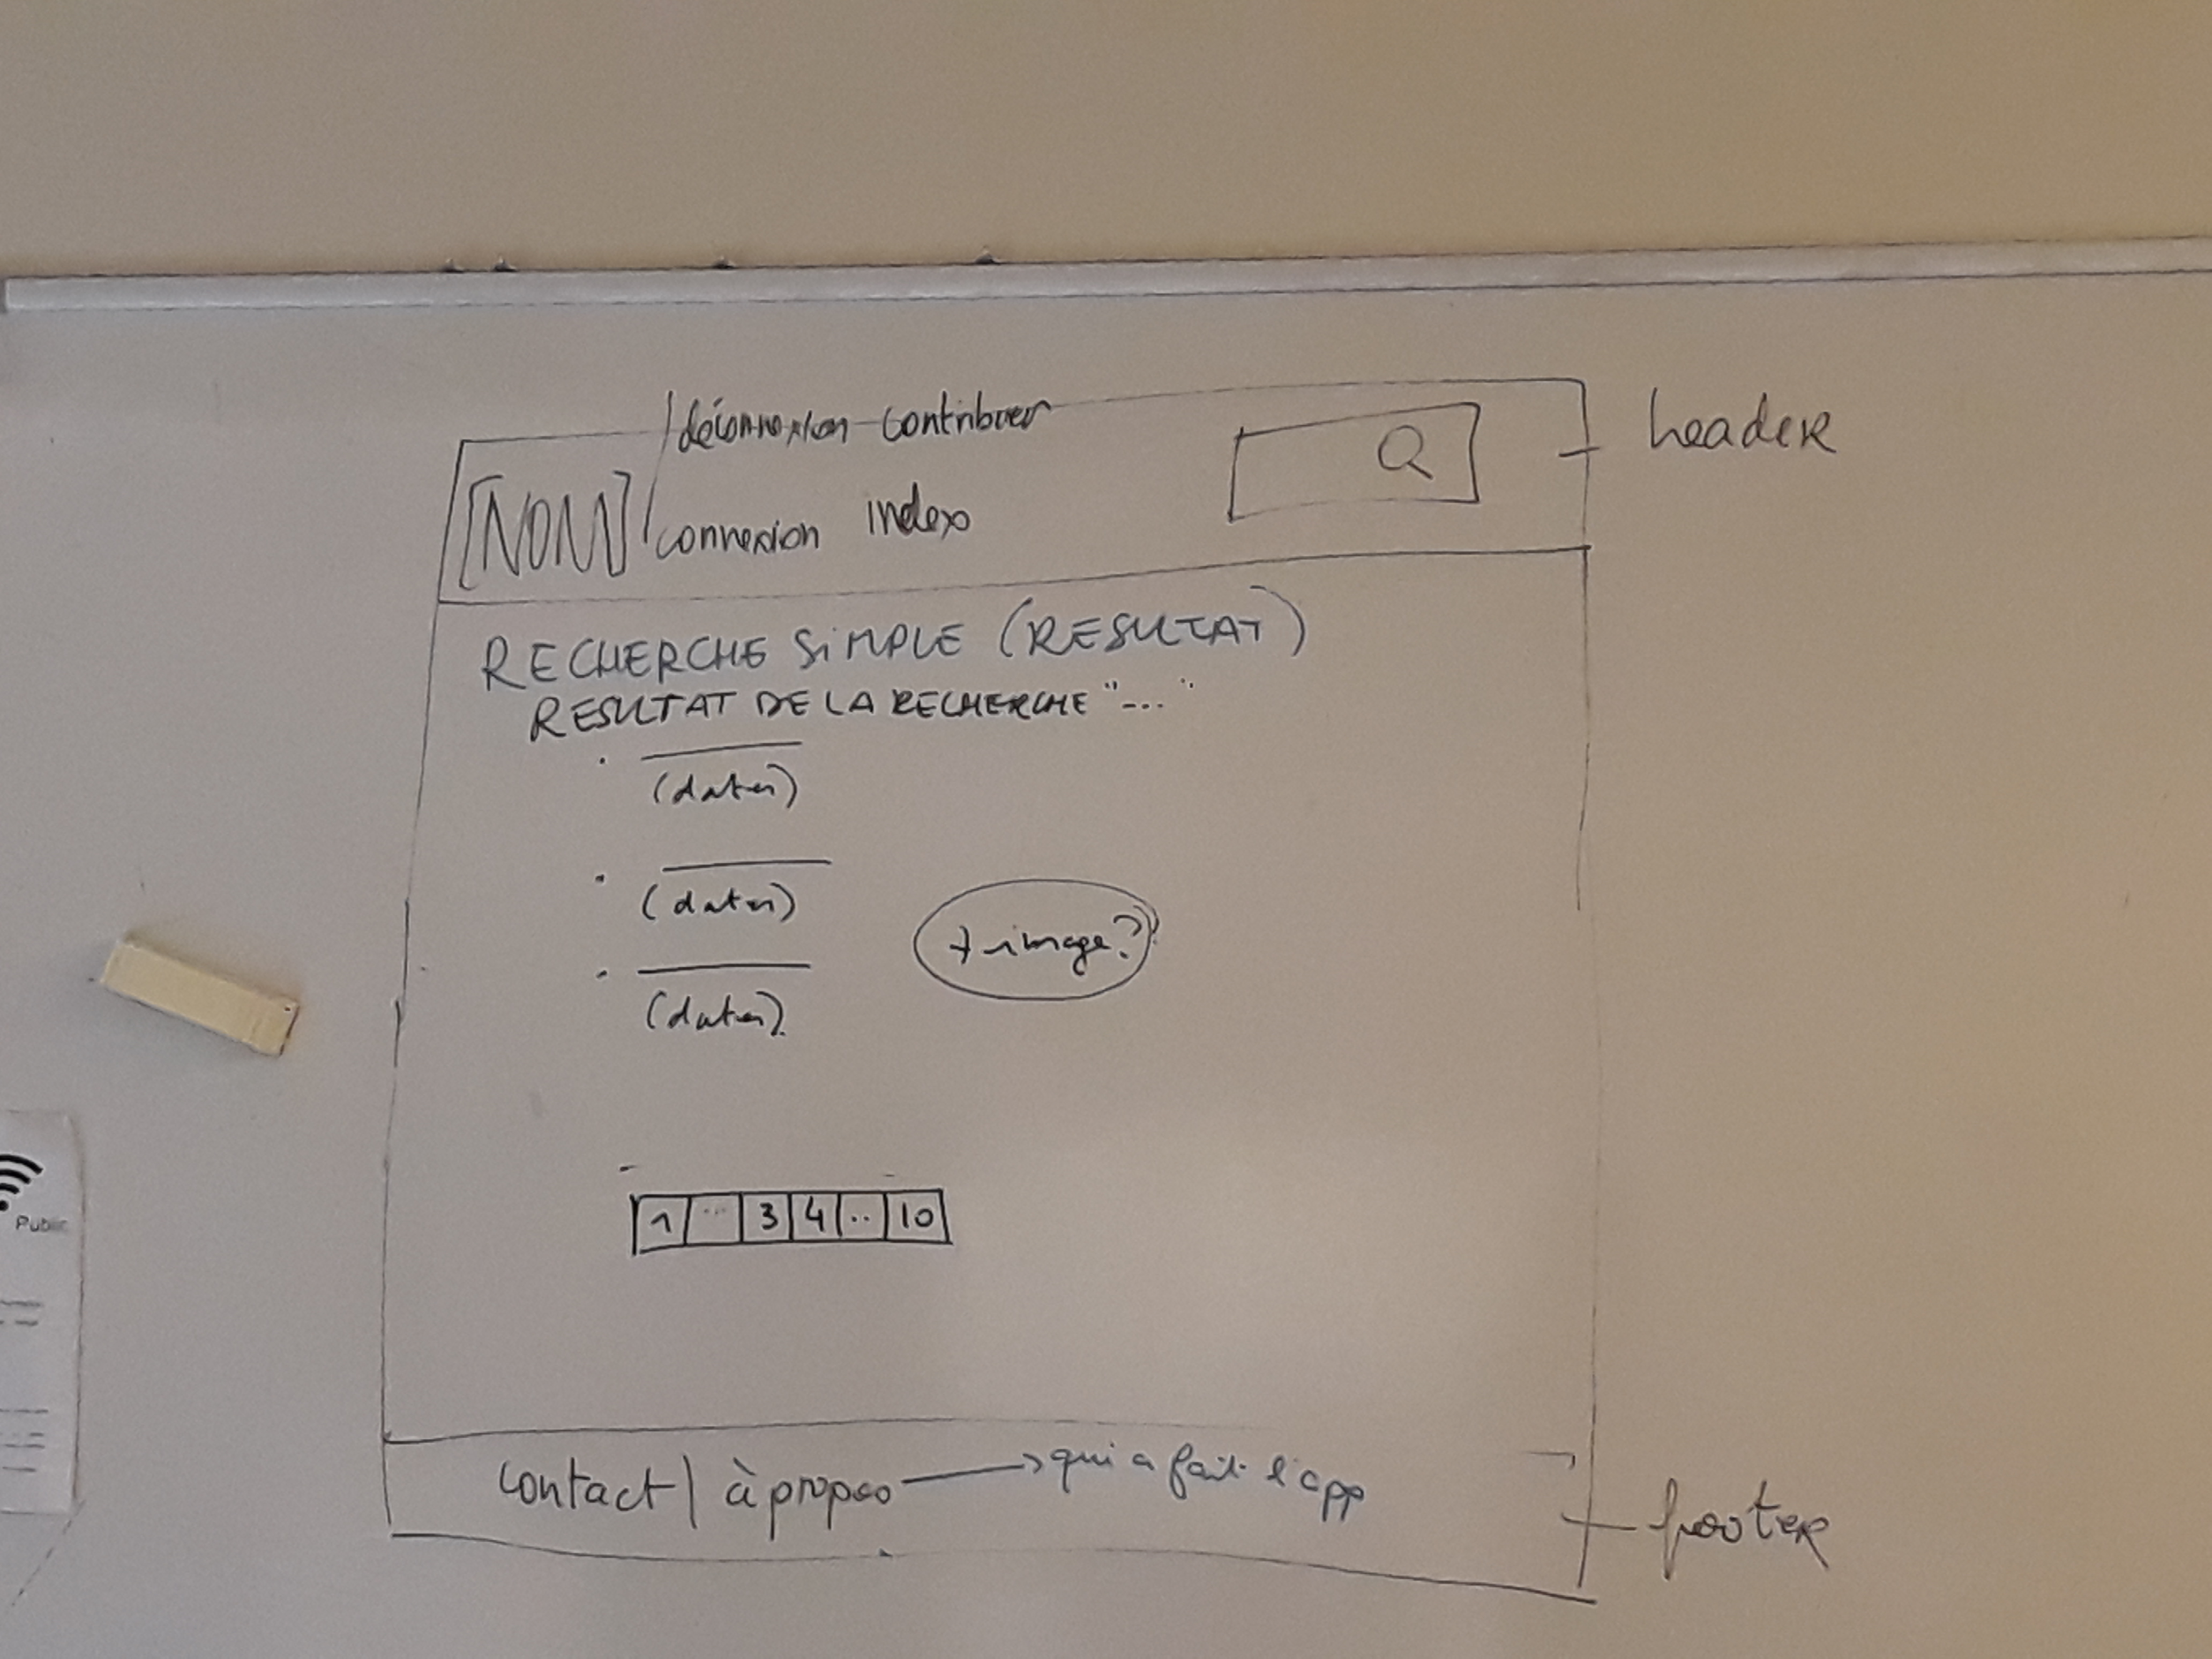 déconnexion contribuer
header
[NOM] connexion index
RECHERCHE SIMPLE (RESULTAT)
RESULTAT DE LA RECHERCHE "..."
(dates)
(dates)
+ image?
(dates)
1 ... 3 4 .. 10
contact | à propos → qui a fait l'app
footer
Public